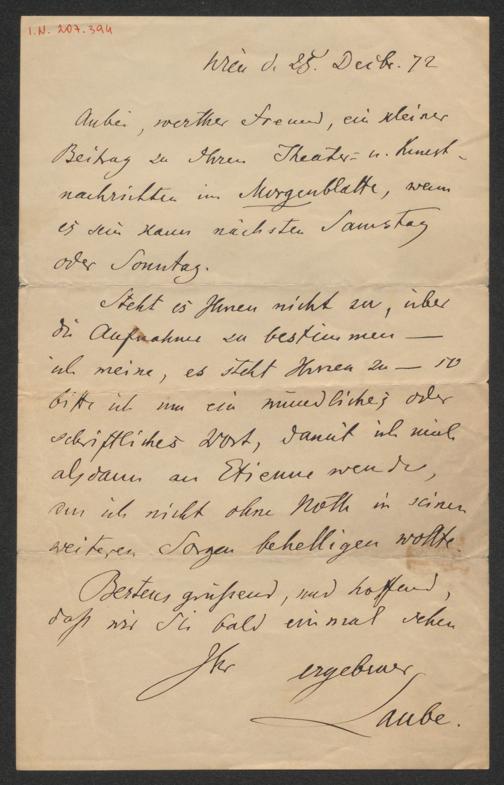 I.N. 207.394
Wien d. 25. Decbr. 72
Anbei, werther Freund, ein kleiner
Beitrag zu Ihren Theater- u. Kunst-
nachrichten im Morgenblatte, wenn
es sein kann nächsten Samstag
oder Sonntag.
Steht es Ihnen nicht zu, über
die Aufnahme zu bestimmen —
ich meine, es steht Ihnen zu — so
bitte ich um ein mündliches oder
schriftliches Wort, damit ich mich
alsdann an Etienne wende,
den ich nicht ohne Noth in seinen
weiteren Sorgen behelligen wollte.
Bestens grüßend, und hoffend,
daß wir Sie bald einmal sehen
Ihr ergebener
Laube.